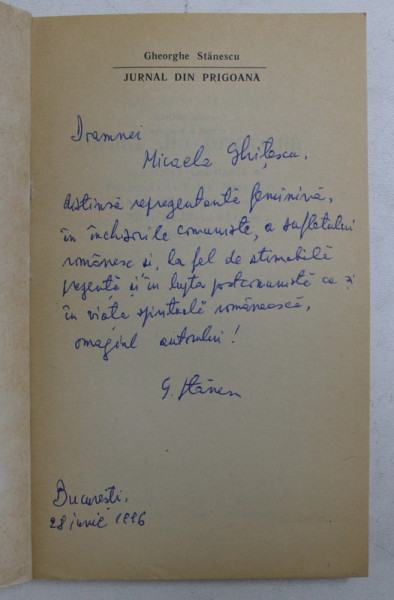 Gheorghe Stănescu
JURNAL DIN PRIGOANĂ
Doamnei
Micaela Ghițescu,
distinsă reprezentantă feminină,
în închisorile comuniste, a sufletului
românesc și, la fel de stimabilă
prezență și în lupta postcomunistă ca și
în viața spirituală românească,
omagiul autorului!
G. Stănescu
București,
28 iunie 1996